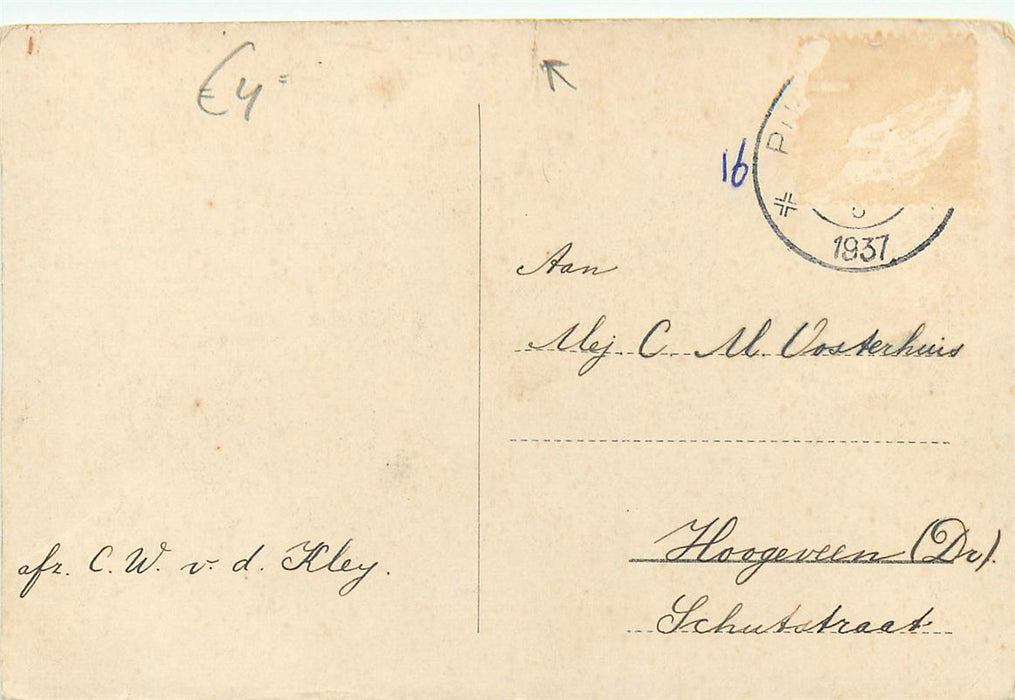 €4=
16
1937
Aan
Mej. C. M. Oosterhuis
Hoogeveen (Dr).
Schutstraat
afz. C. W. v. d. Kley.